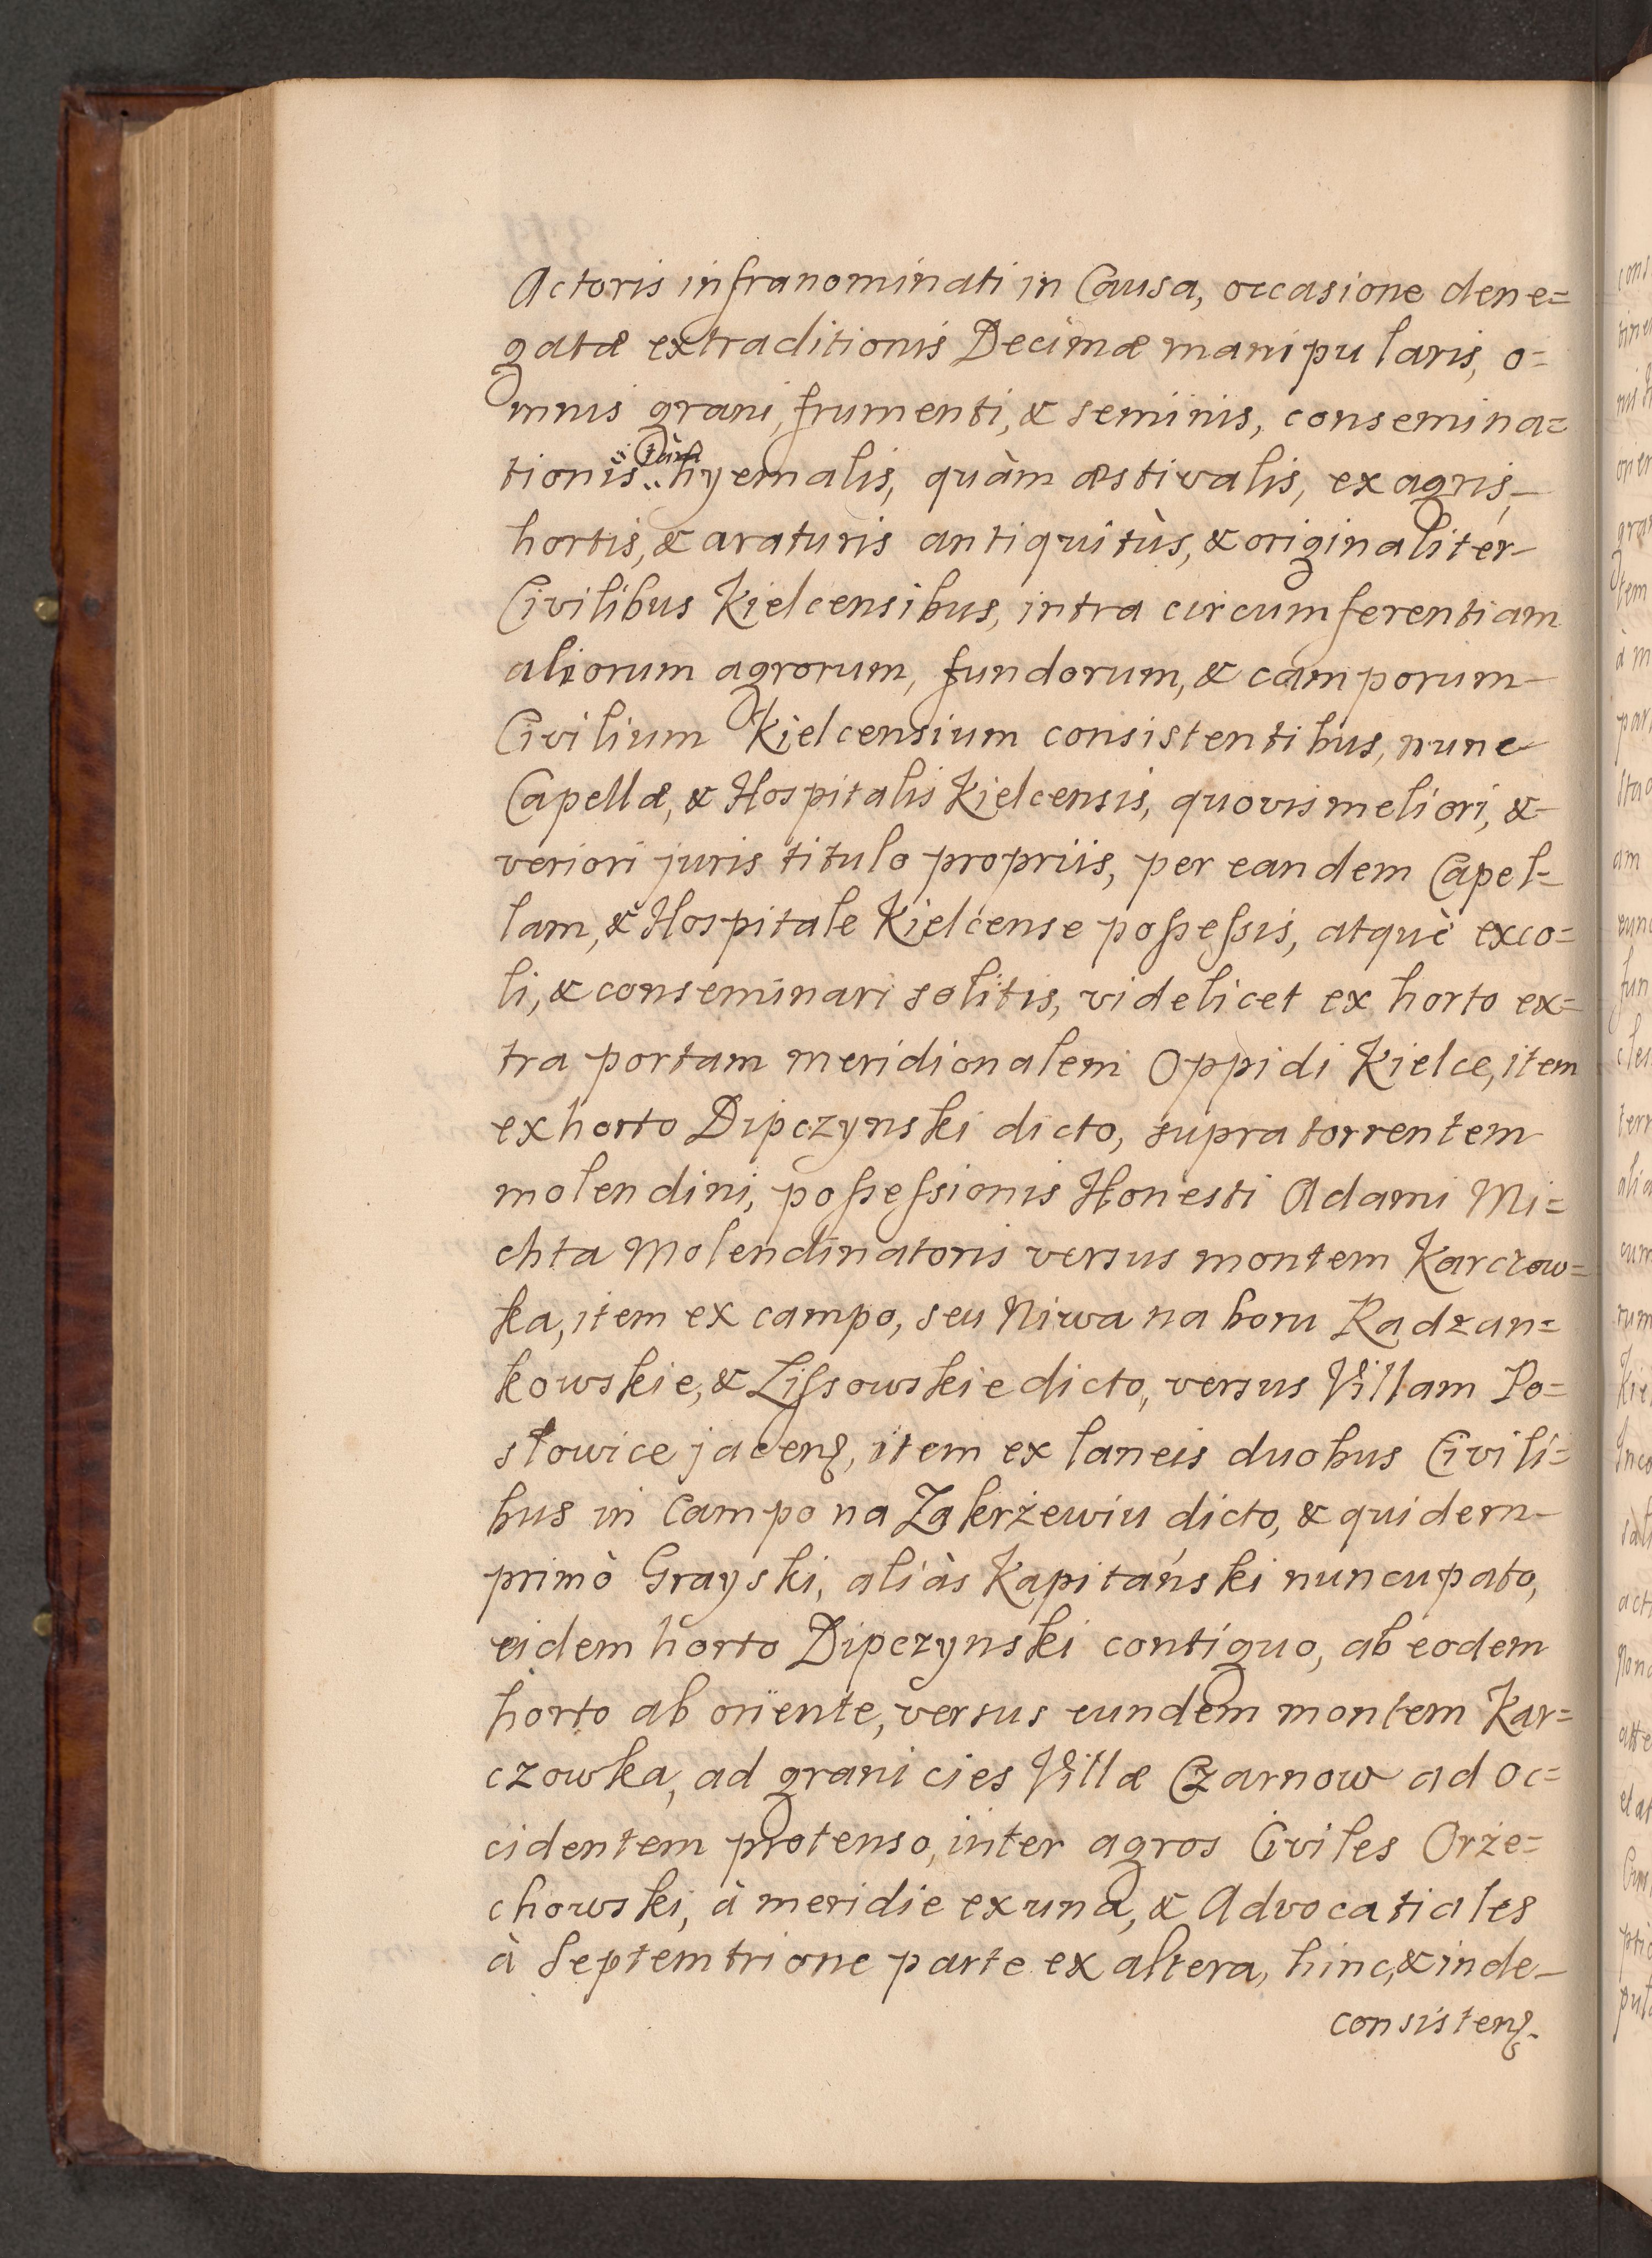 Actoris infranominati in Causa, occasione dene=
gatæ extraditionis Decimæ manipularis, o=
mnis grani, frumenti, & seminis, consemina=
tionis tàm hyemalis, quàm æstivalis, ex agris,
hortis, & araturis antiquitùs, & originalitér
Civilibus Kielcensibus, intra circumferentiam
aliorum agrorum, fundorum, & camporum
Civilium Kielcensium consistentibus, nunc
Capellæ, & Hospitalis Kielcensis, quovis meliori, &
veriori juris titulo propriis, per eandem Capel=
lam, & Hospitale Kielcense poſseſsis, atquè exco=
li, & conseminari solitis, videlicet ex horto ex=
tra portam meridionalem Oppidi Kielce, item
ex horto Dipczynski dicto, supra torrentem
molendini, poſseſsionis Honesti Adami Mi=
chta Molendinatoris versus montem Karczow=
ka, item ex campo, seu Niwa na boru Radzan=
kowskie, & Liſsowskie dicto, versus Villam Po=
słowice jacenꝭ, item ex laneis duobus Civili=
bus in Campo na Zakrżewiu dicto, & quidem
primò Grayski, aliàs Kapitański nuncupato,
eidem horto Dipczynski contiguo, ab eodem
horto ab oriente, versus eundem montem Kar=
czowka, ad granicies Villæ Czarnow ad oc=
cidentem protenso, inter agros Civiles Orże=
chowski, à meridie ex una, & Advocatiales
à Septemtrione parte ex altera, hinc, & inde
consistenꝭ.